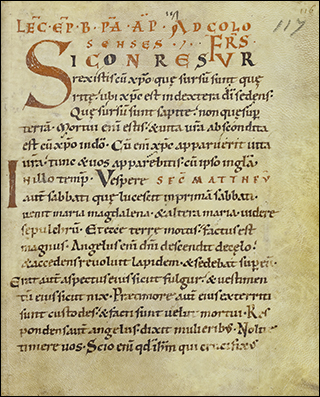 116
117
LEC̄ EP̄ B PĀ AP̄ AD COLO
SENSES · FR̄S
SI CONRESVR
rexistis cū xp̄o quę sursū sunt quę
rite · ubi xp̄c est in dextera dī sedens ·
Quę sursū sunt sapite · non quę sup̄
terrā · Mortui eni estis · & uita urā abscondita
est cū xp̄o in dō · Cū em̄ xp̄c apparuerit uita
urā · tunc & uos apparebitis cū ipso in glā
In illo temp̄ · Vespere SEC̄ MATTHEV
aut̄ sabbati quę lucescit in prima sabbati ·
uenit maria magdalena & altera maria · uidere
sepulchrū · Et ecce terre motus · factus est
magnus · Angelus em̄ dn̄i descendit de celo ·
& accedens reuoluit lapidem · & sedebat sup eū ·
Erat aut̄ aspectus eius sicut fulgur · & uestimen
tū eius sicut nix · Pre timore aut̄ eius exterriti
sunt custodes · & facti sunt uelut mortui · Res
pondens aut̄ angelus · dixit mulieribus · Nolite
timere uos · Scio em̄ qd ihm̄ qui crucifixus